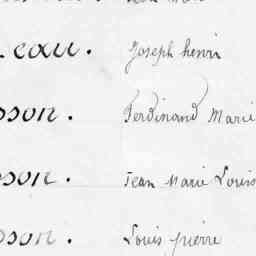 eau. Joseph henri
sson. Ferdinand Marie
son. Jean Marie Louis
son. Louis pierre